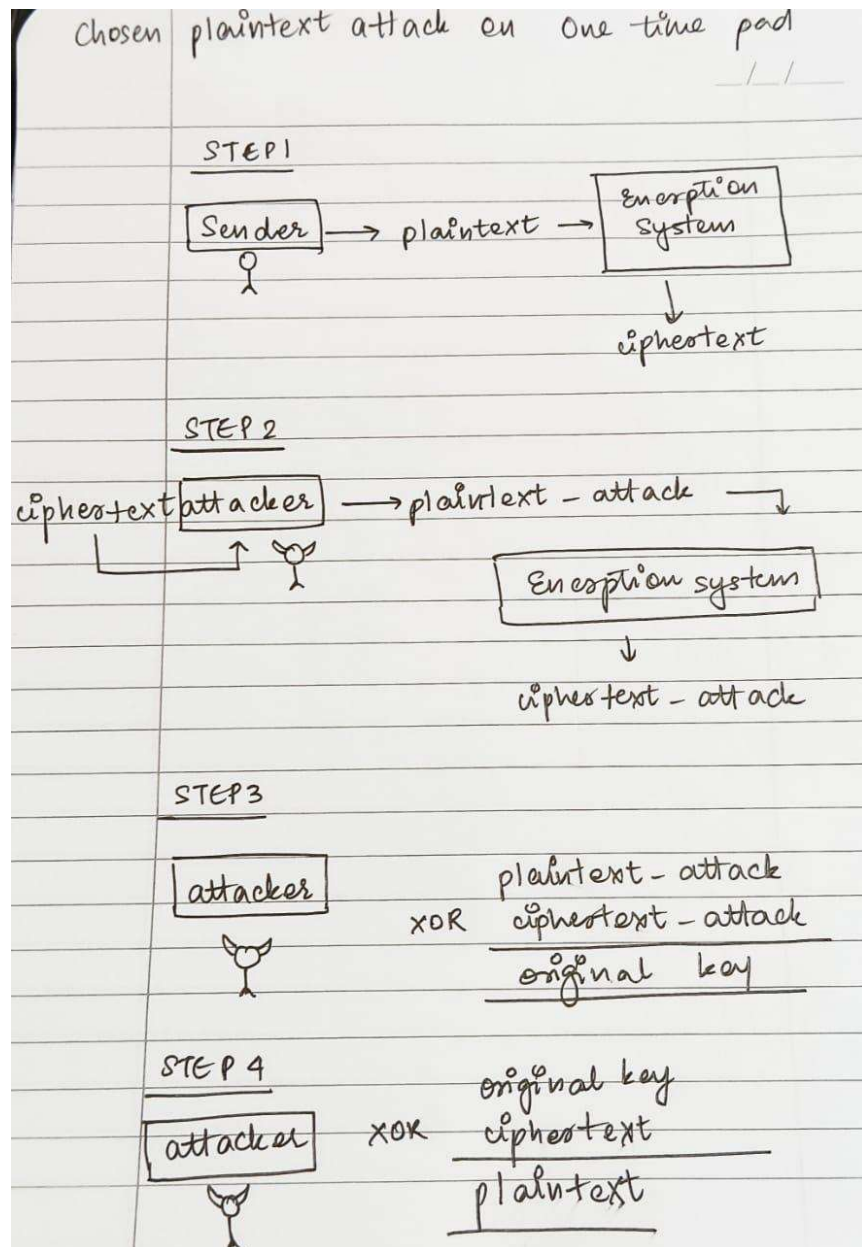 Chosen plaintext attack on One time pad
__/__/____
STEP1
Sender → plaintext → Encrption
system
ciphertext
STEP 2
ciphertext attacker → plaintext - attack
Encrption system
ciphertext - attack
STEP3
attacker
plaintext - attack
XOR ciphertext - attack
original key
STEP 4
original key
attacker XOR ciphertext
plaintext